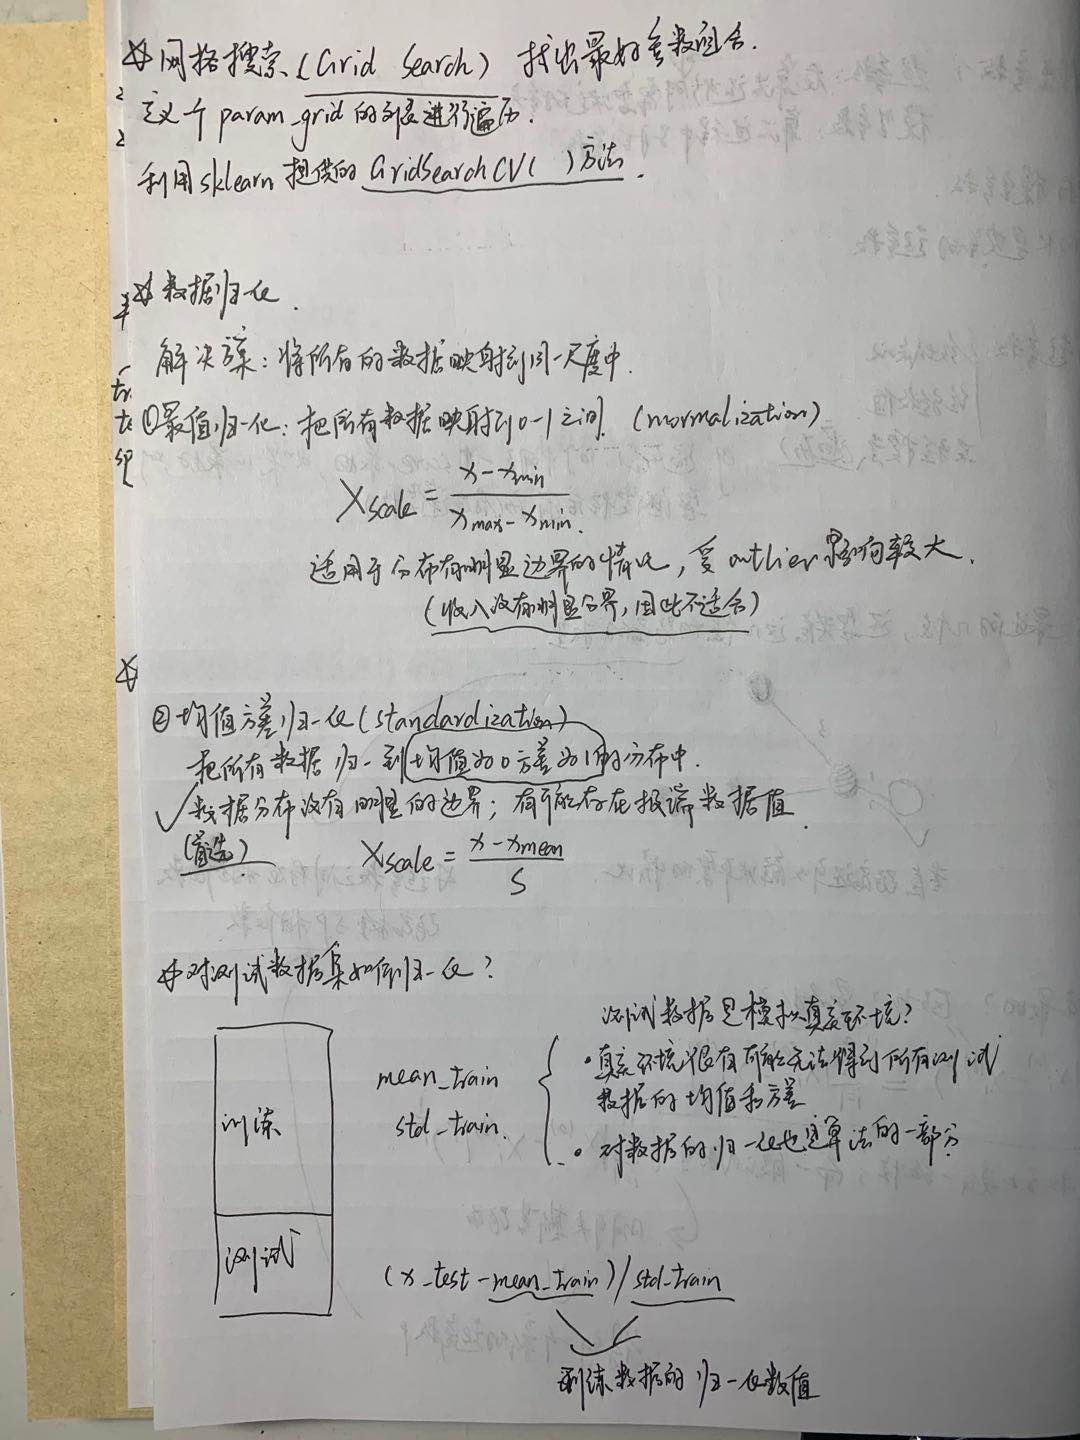 网格搜索 (Grid Search) 找出最好参数组合.
定义一个 param_grid 的列表进行遍历.
利用 sklearn 提供的 GridSearchCV( ) 方法.
数据归一化.
解决方案: 将所有的数据映射到同一尺度中.
①最值归一化: 把所有数据映射到0-1之间. (normalization)
Xscale = (x - xmin) / (xmax - xmin)
适用于分布有明显边界的情况, 受outlier影响较大.
(收入没有明显边界, 因此不适合)
②均值方差归一化(standardization)
把所有数据归一到均值为0方差为1的分布中.
✓数据分布没有明显的边界; 有可能存在极端数据值
(首选)
Xscale = (x - xmean) / S
对测试数据集如何归一化?
测试数据是模拟真实环境?
mean_train
std_train.
• 真实环境很有可能无法得到所有测试
数据的均值和方差
• 对数据的归一化也是算法的一部分
训练
测试
(x_test - mean_train) / std_train
训练数据的归一化数值